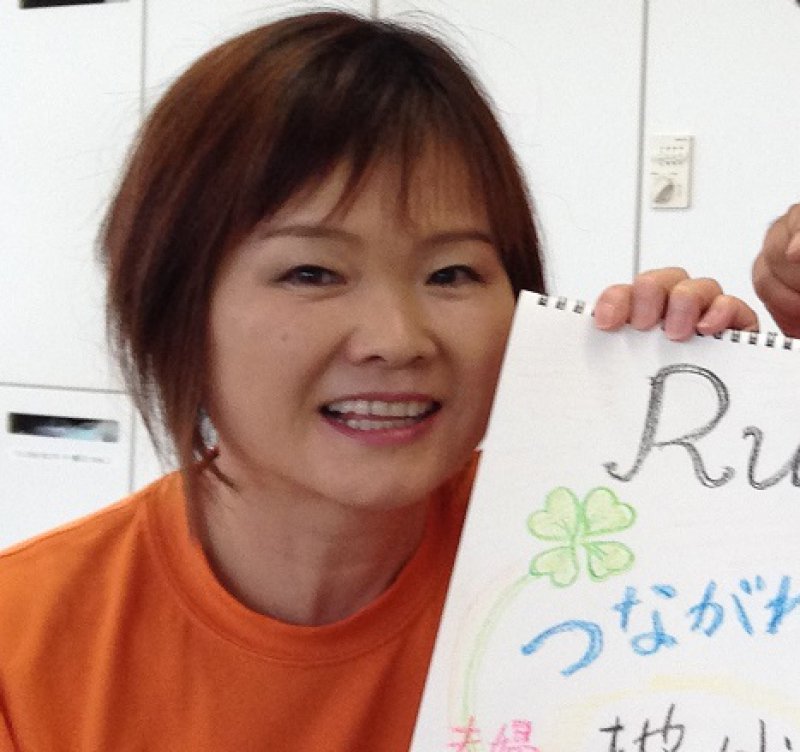 Ru
つながれ
夫婦 地